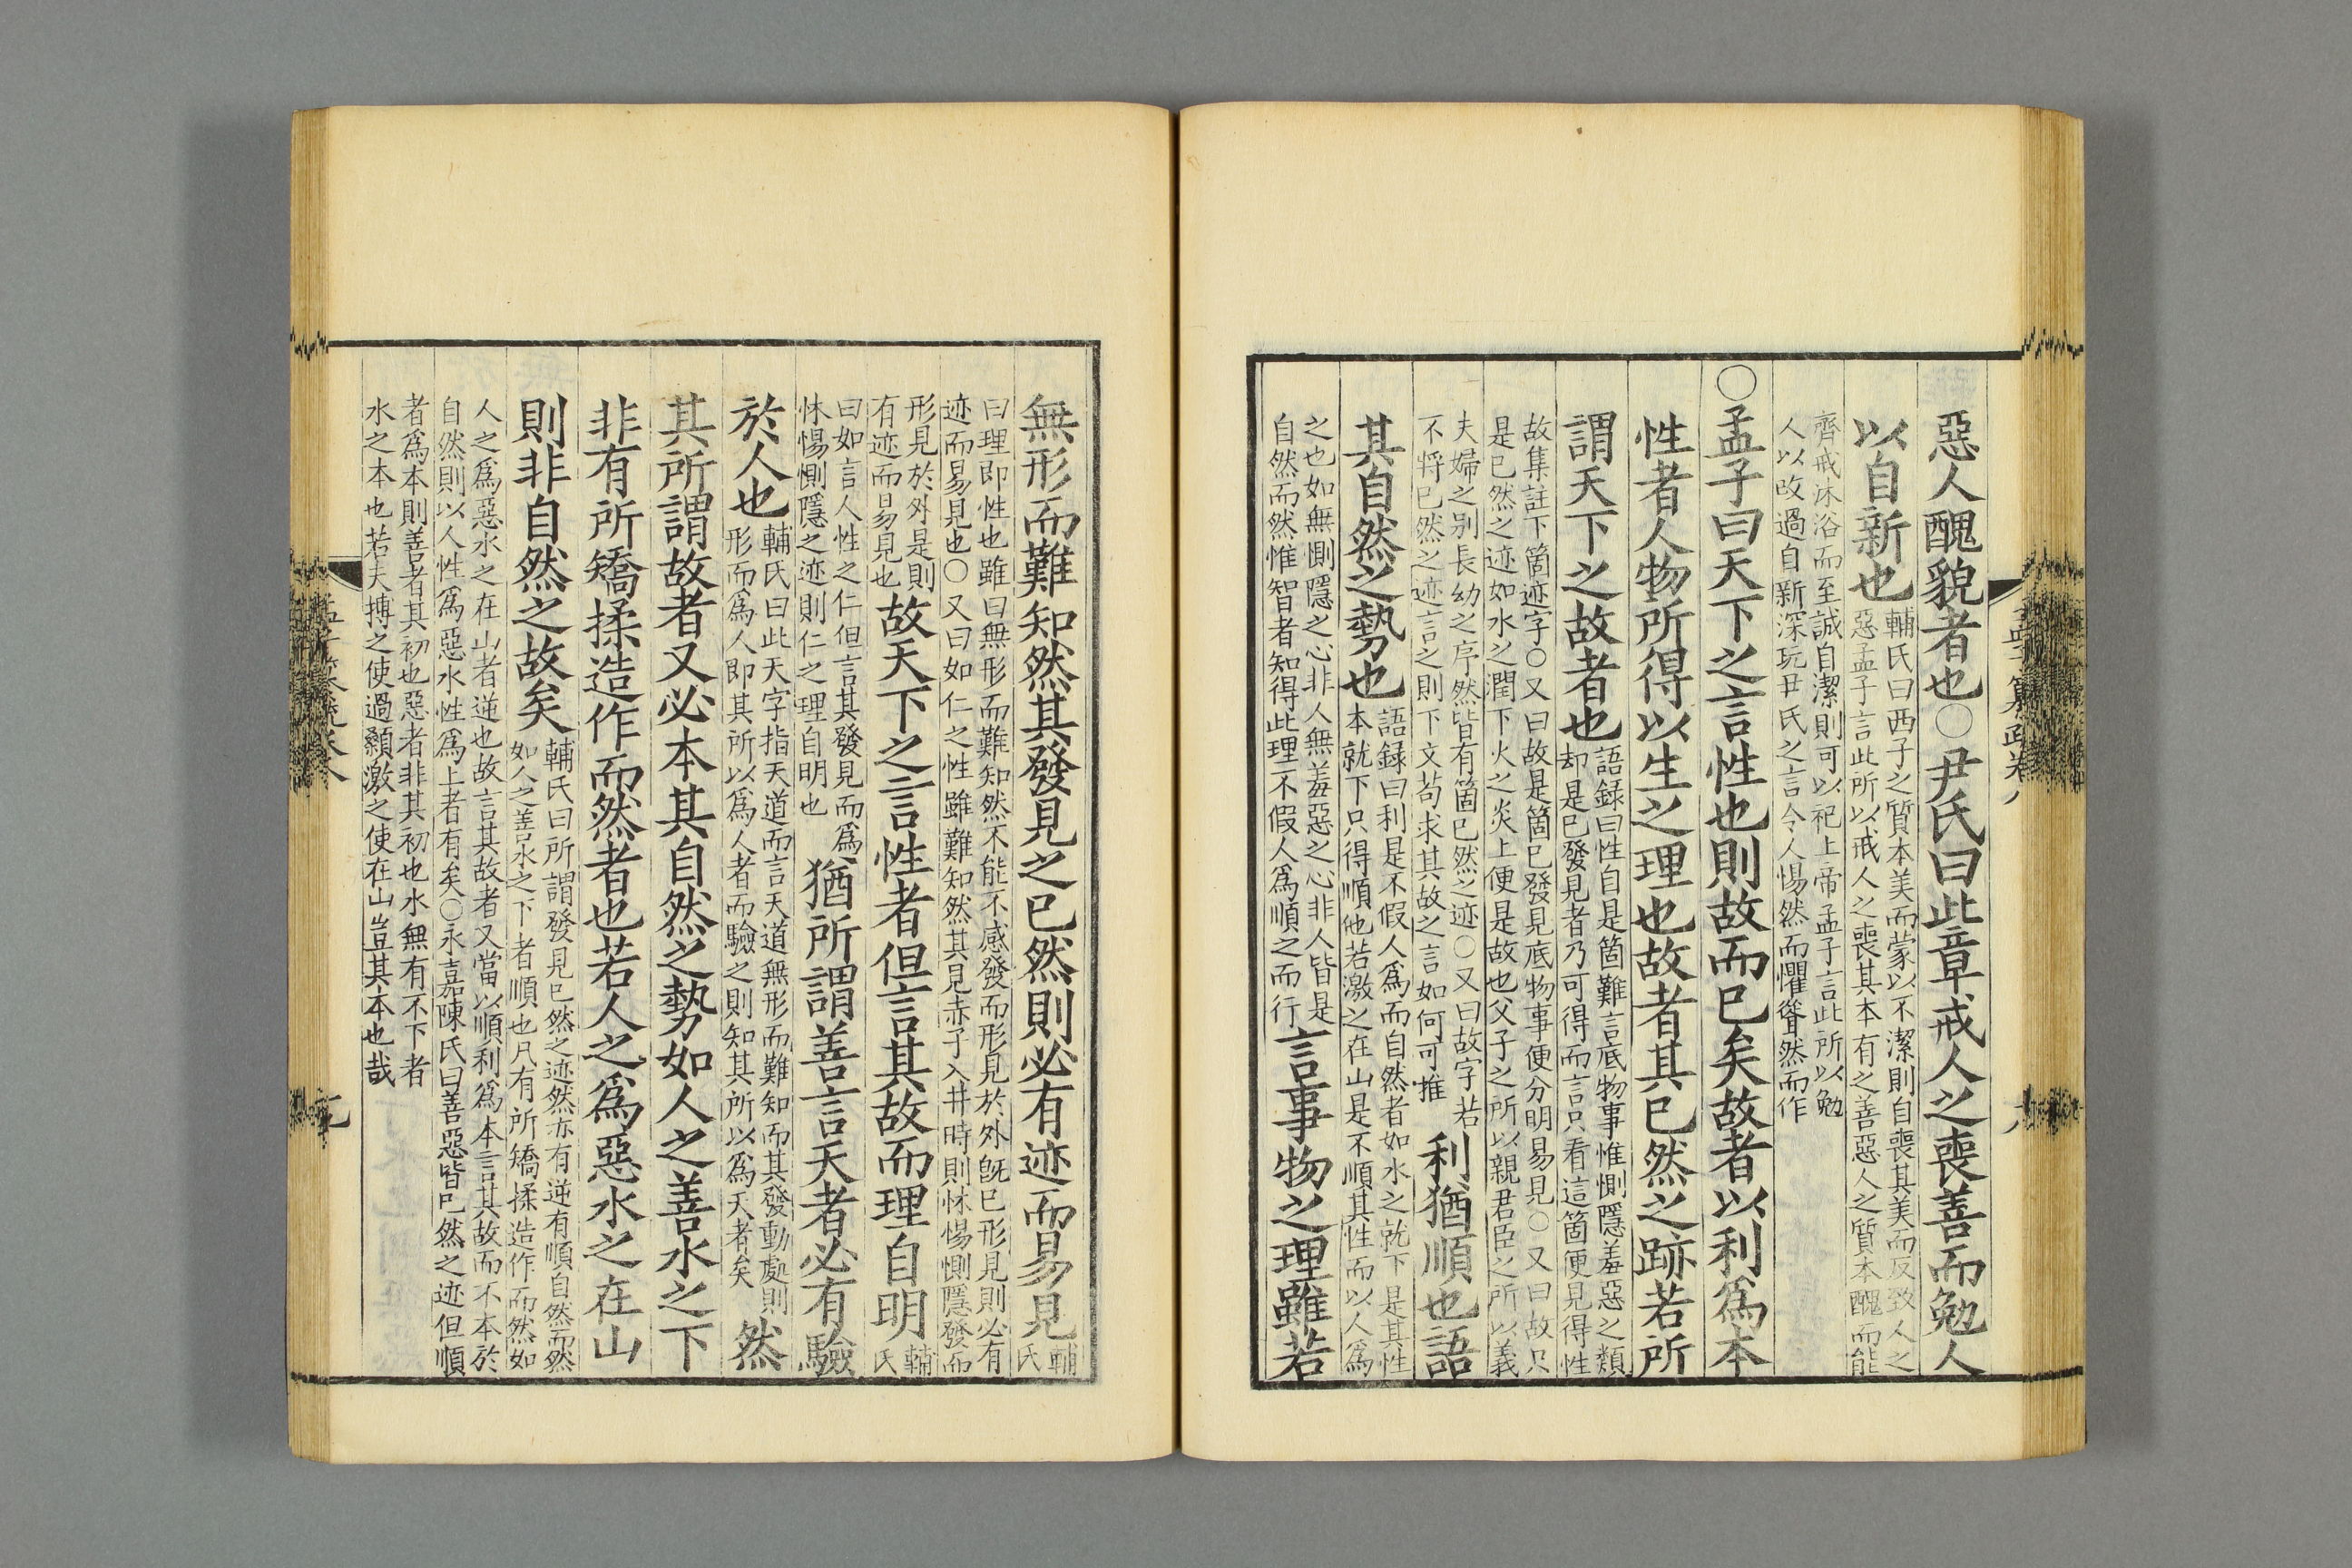 惡人醜貌者也○尹氏曰此章戒人之喪善而勉人
以自新也
輔氏曰西子之質本美而蒙以不潔則自喪其美而反致人之
惡孟子言此所以戒人之喪其本有之善惡人之質本醜而能
齊戒沐浴而至誠自潔則可以祀上帝孟子言此所以勉
人以改過自新深玩尹氏之言令人惕然而懼聳然而作
○孟子曰天下之言性也則故而已矣故者以利爲本
性者人物所得以生之理也故者其已然之跡若所
謂天下之故者也
語録曰性自是箇難言底物事惟惻隱羞惡之類
却是已發見者乃可得而言只看這箇便見得性
故集註下箇迹字○又曰故是箇已發見底物事便分明易見○又曰故只
是已然之迹如水之潤下火之炎上便是故也父子之所以親君臣之所以義
夫婦之别長幼之序然皆有箇已然之迹○又曰故字若
不將已然之迹言之則下文苟求其故之言如何可推
利猶順也語
其自然之勢也
語録曰利是不假人爲而自然者如水之就下是其性
本就下只得順他若激之在山是不順其性而以人爲
之也如無惻隱之心非人無羞惡之心非人皆是
自然而然惟智者知得此理不假人爲順之而行
言事物之理雖若
無形而難知然其發見之已然則必有迹而易見
輔
氏
曰理即性也雖曰無形而難知然不能不感發而形見於外旣已形見則必有
迹而易見也○又曰如仁之性雖難知然其見赤子入井時則怵惕惻隱發而
形見於外是則
有迹而易見也
故天下之言性者但言其故而理自明
輔
氏
曰如言人性之仁但言其發見而爲
怵惕惻隱之迹則仁之理自明也
猶所謂善言天者必有驗
於人也
輔氏曰此天字指天道而言天道無形而難知而其發動處則
形而爲人即其所以爲人者而驗之則知其所以爲天者矣
然
其所謂故者又必本其自然之勢如人之善水之下
非有所矯揉造作而然者也若人之爲惡水之在山
則非自然之故矣
輔氏曰所謂發見已然之迹然亦有逆有順自然而然
如人之善水之下者順也凡有所矯揉造作而然如
人之爲惡水之在山者逆也故言其故者又當以順利爲本言其故而不本於
自然則以人性爲惡水性爲上者有矣○永嘉陳氏曰善惡皆已然之迹但順
者爲本則善者其初也惡者非其初也水無有不下者
水之本也若夫搏之使過顙激之使在山豈其本也哉